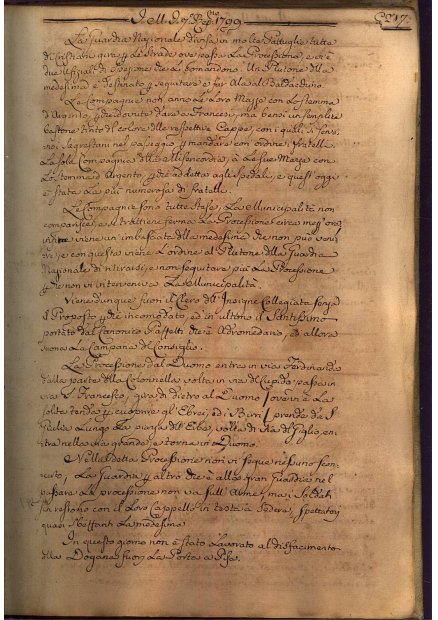 1799
La Guardia Nazionale divisa in molte Pattuglie tutta
di Cristiani gira le Strade ove passa La Processione, e vi è
due Ufiziali di Insieme che Li Comandono. Un Plutone della
medesima è destinato a seguitare e far Ala al Baldacchino
Le Compagnie non anno Le Loro Mazze con Lo stemma
d'Argento, dovute dare a Francesi, ma bensì un semplice
bastone tinto del colore delle respettive Cappe, con i quali si servo,
no i Sagrestani nel passeggio mandare con ordine i fratelli
La sola Compagnia della Misericordia à Le sue Mazze con
Lo stemma d'Argento, addetta agli Spedali, e quest'oggi
è stata La più numerosa di fratelli.
Le Compagnie sono tutte stese, La Municipalità non
comparisce, e si trattiene ferma La Processione circa mezz'ora
viene un'imbasciata della medesima che non può veni,
re, e con questa viene L'ordine al Plutone della Guardia
Nazionale di ritirarsi, e non seguitare più La Processione
che non vi interveniva La Municipalità.
Viene dunque fuori il Clero dell'Insigne Collegiata senza
il Proposto incomodato, ed in ultimo il Santissimo
portato dal Canonico Raffelli che è Decano, ed allora
suona La Campana del Consiglio.
La Processione dal Duomo entra in via Ferdinanda
dalla parte della Colonnella, volta in via del Cupido, passa in
via S. Francesco, gira di dietro al Duomo, e La
solita tenda cuoprire gl'Ebrei, ed i Birri, prende da S.
Giulia Lungo La piazza dell'Erbe, volta di Via del Giglio, en,
tra nella via grande, e torna in Duomo.
Nella detta Processione non vi segue nessuno scon,
certo, La Guardia altro che è alla gran Guardia nel
passare La processione non va sull'Arme, ma i Soldati
si restono con il Loro Cappello in testa a sedere, spettatori
quasi La medesima
In questo giorno non è stato Lavorato al disfacimento
della Dogana fuori La Porta a Pisa.